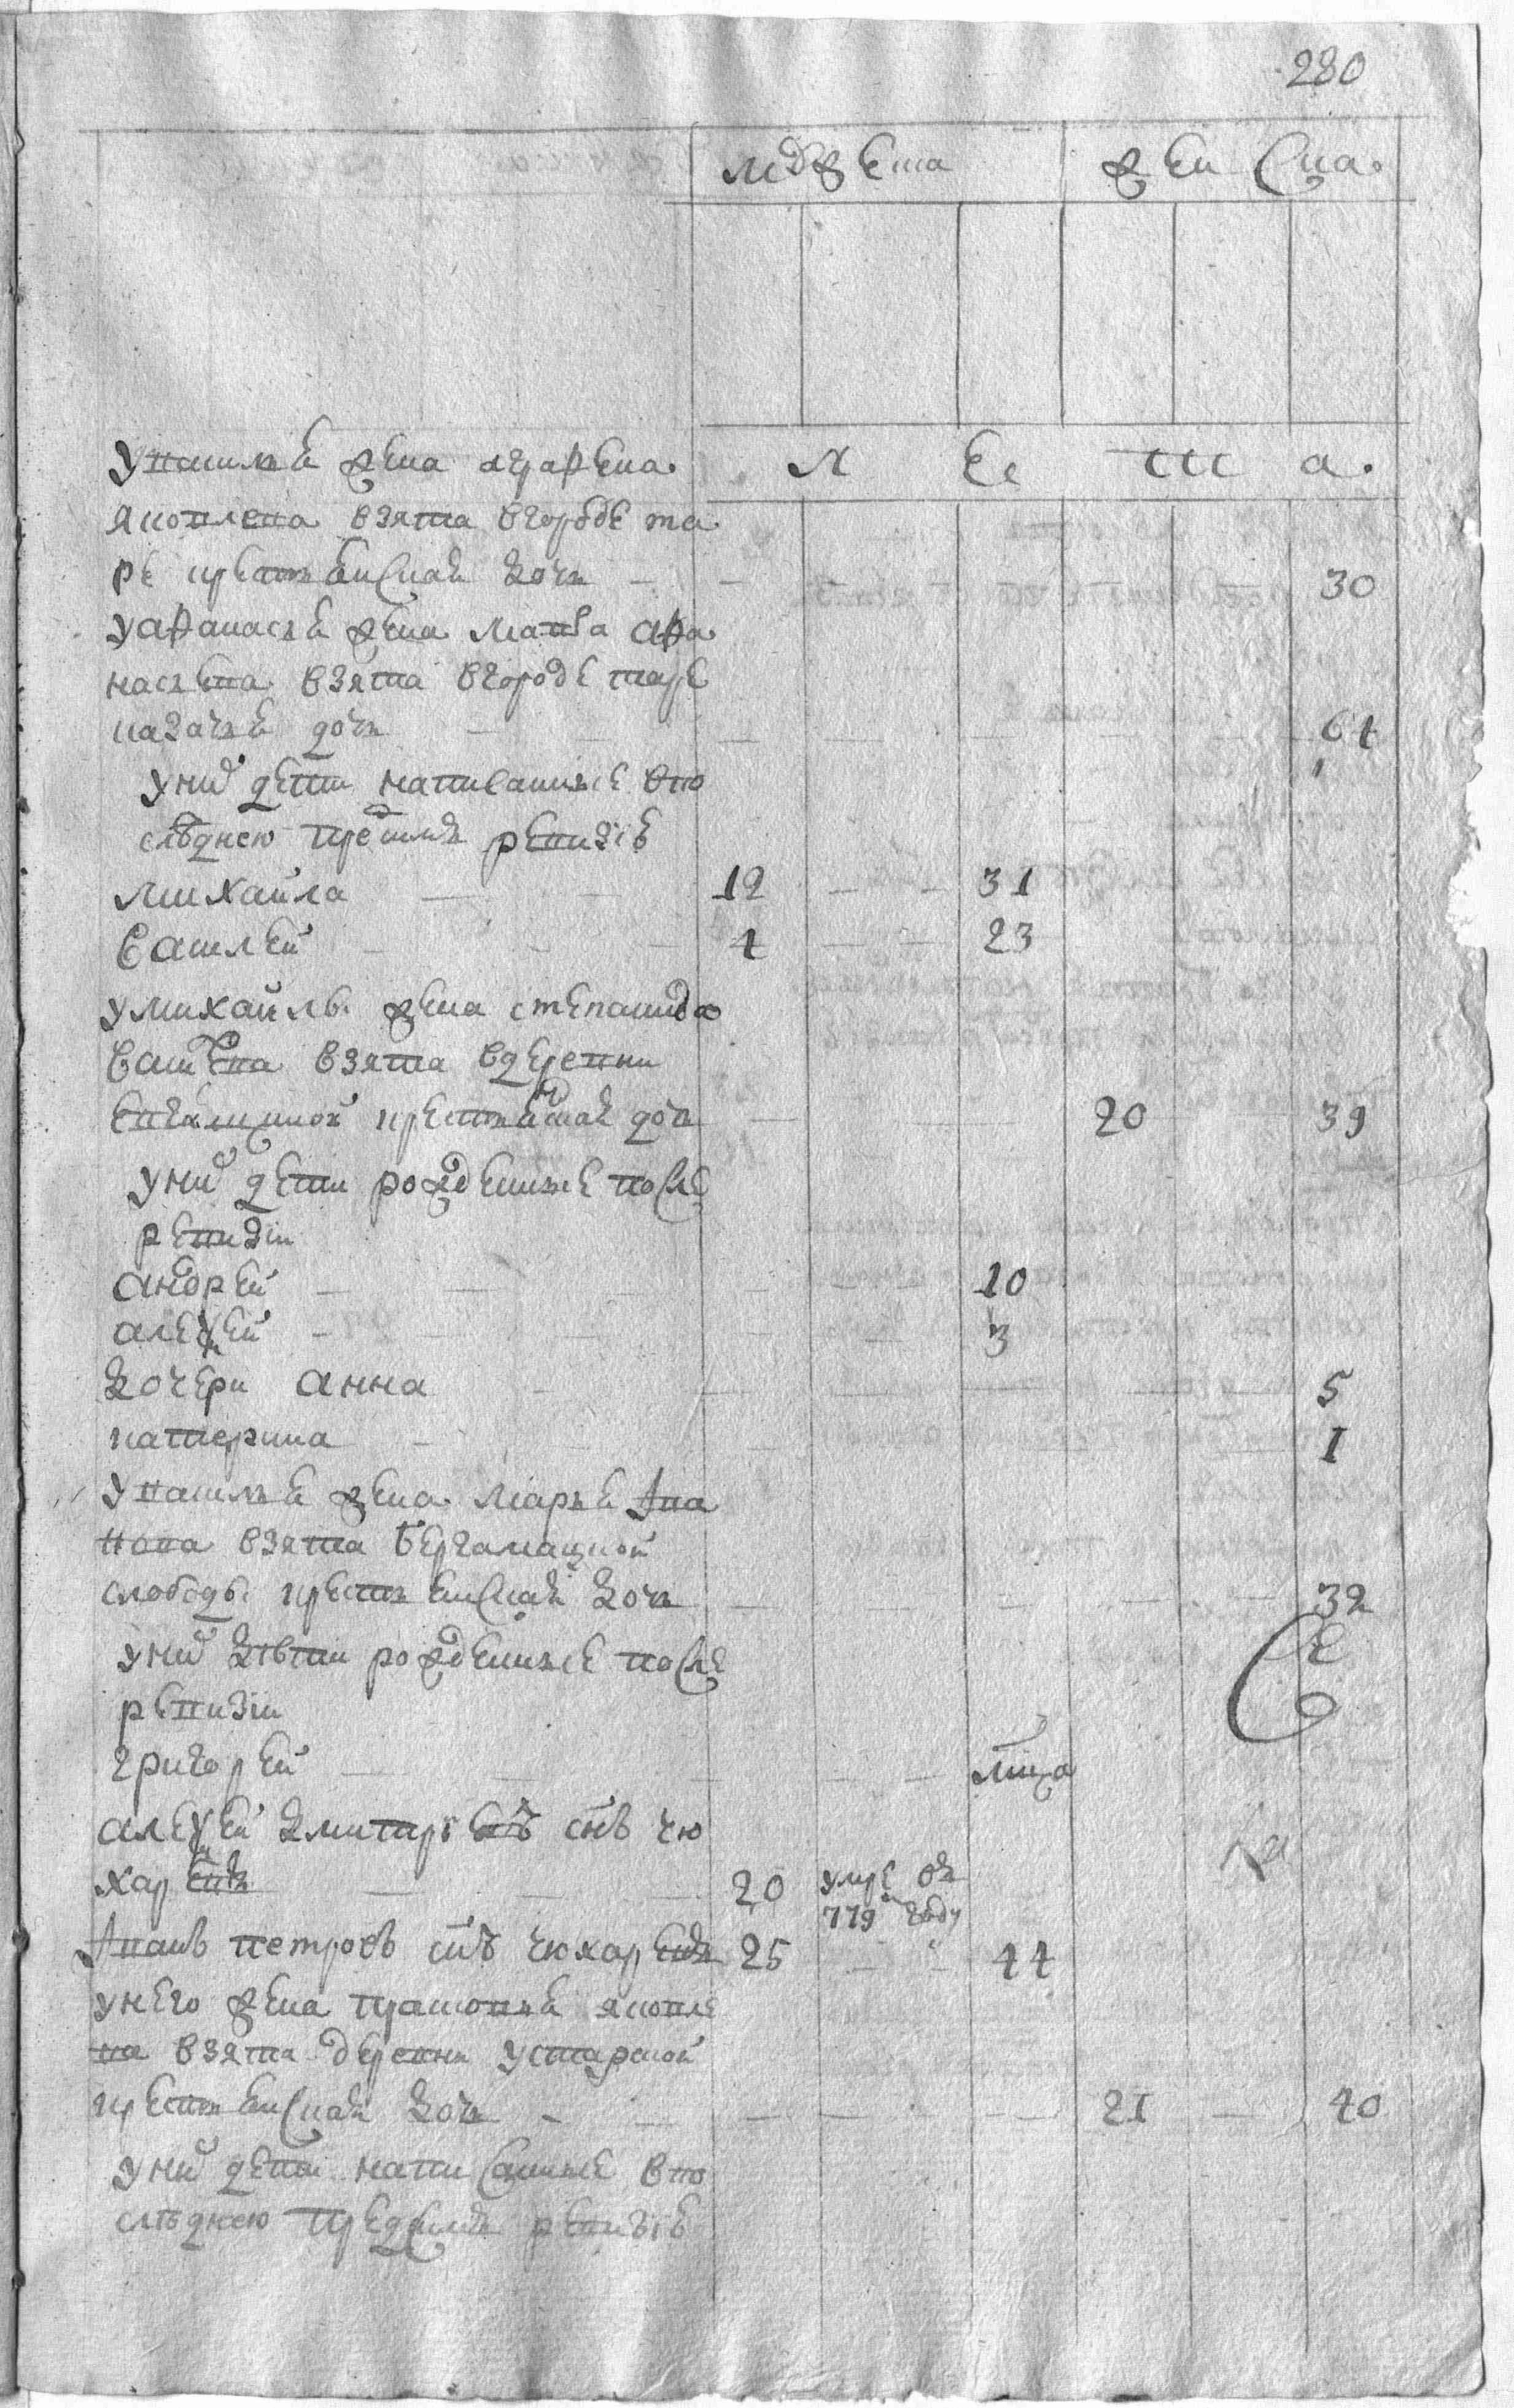 280
мужеска женска
лета
увасилья жена аграфена
яковлева взята вгороде та
ре крестьянская дочь 30
уафанасья жена мавра афа
насьева взята вгороде таре
казачья дочь 64
уних дети написанные впо
следнею пред сим ревизiю
михаила 12 31
василей 4 23
умихаилы жена степанида
взята вдеревни
крестьянская дочь 20 39
уних дети рожденные после
ревизiи
андрей 10
алексей 3
дочери анна 5
катерина 1
увасилья жена марья ива
нова взята бергамацкой
слободы крестьянская дочь 32
уних дѣти рожденные после
ревизiи
григорей
алексей дмитриевъ снъ чю
харевъ 20 умре въ
779 году
иванъ петровъ снъ чюхаревъ 25 44
унего жена прасковья яковле
ва взята деревни устарской
крестьянская дочь 21 40
уних дети написанные впо
слѣднею пред сим ревизiю